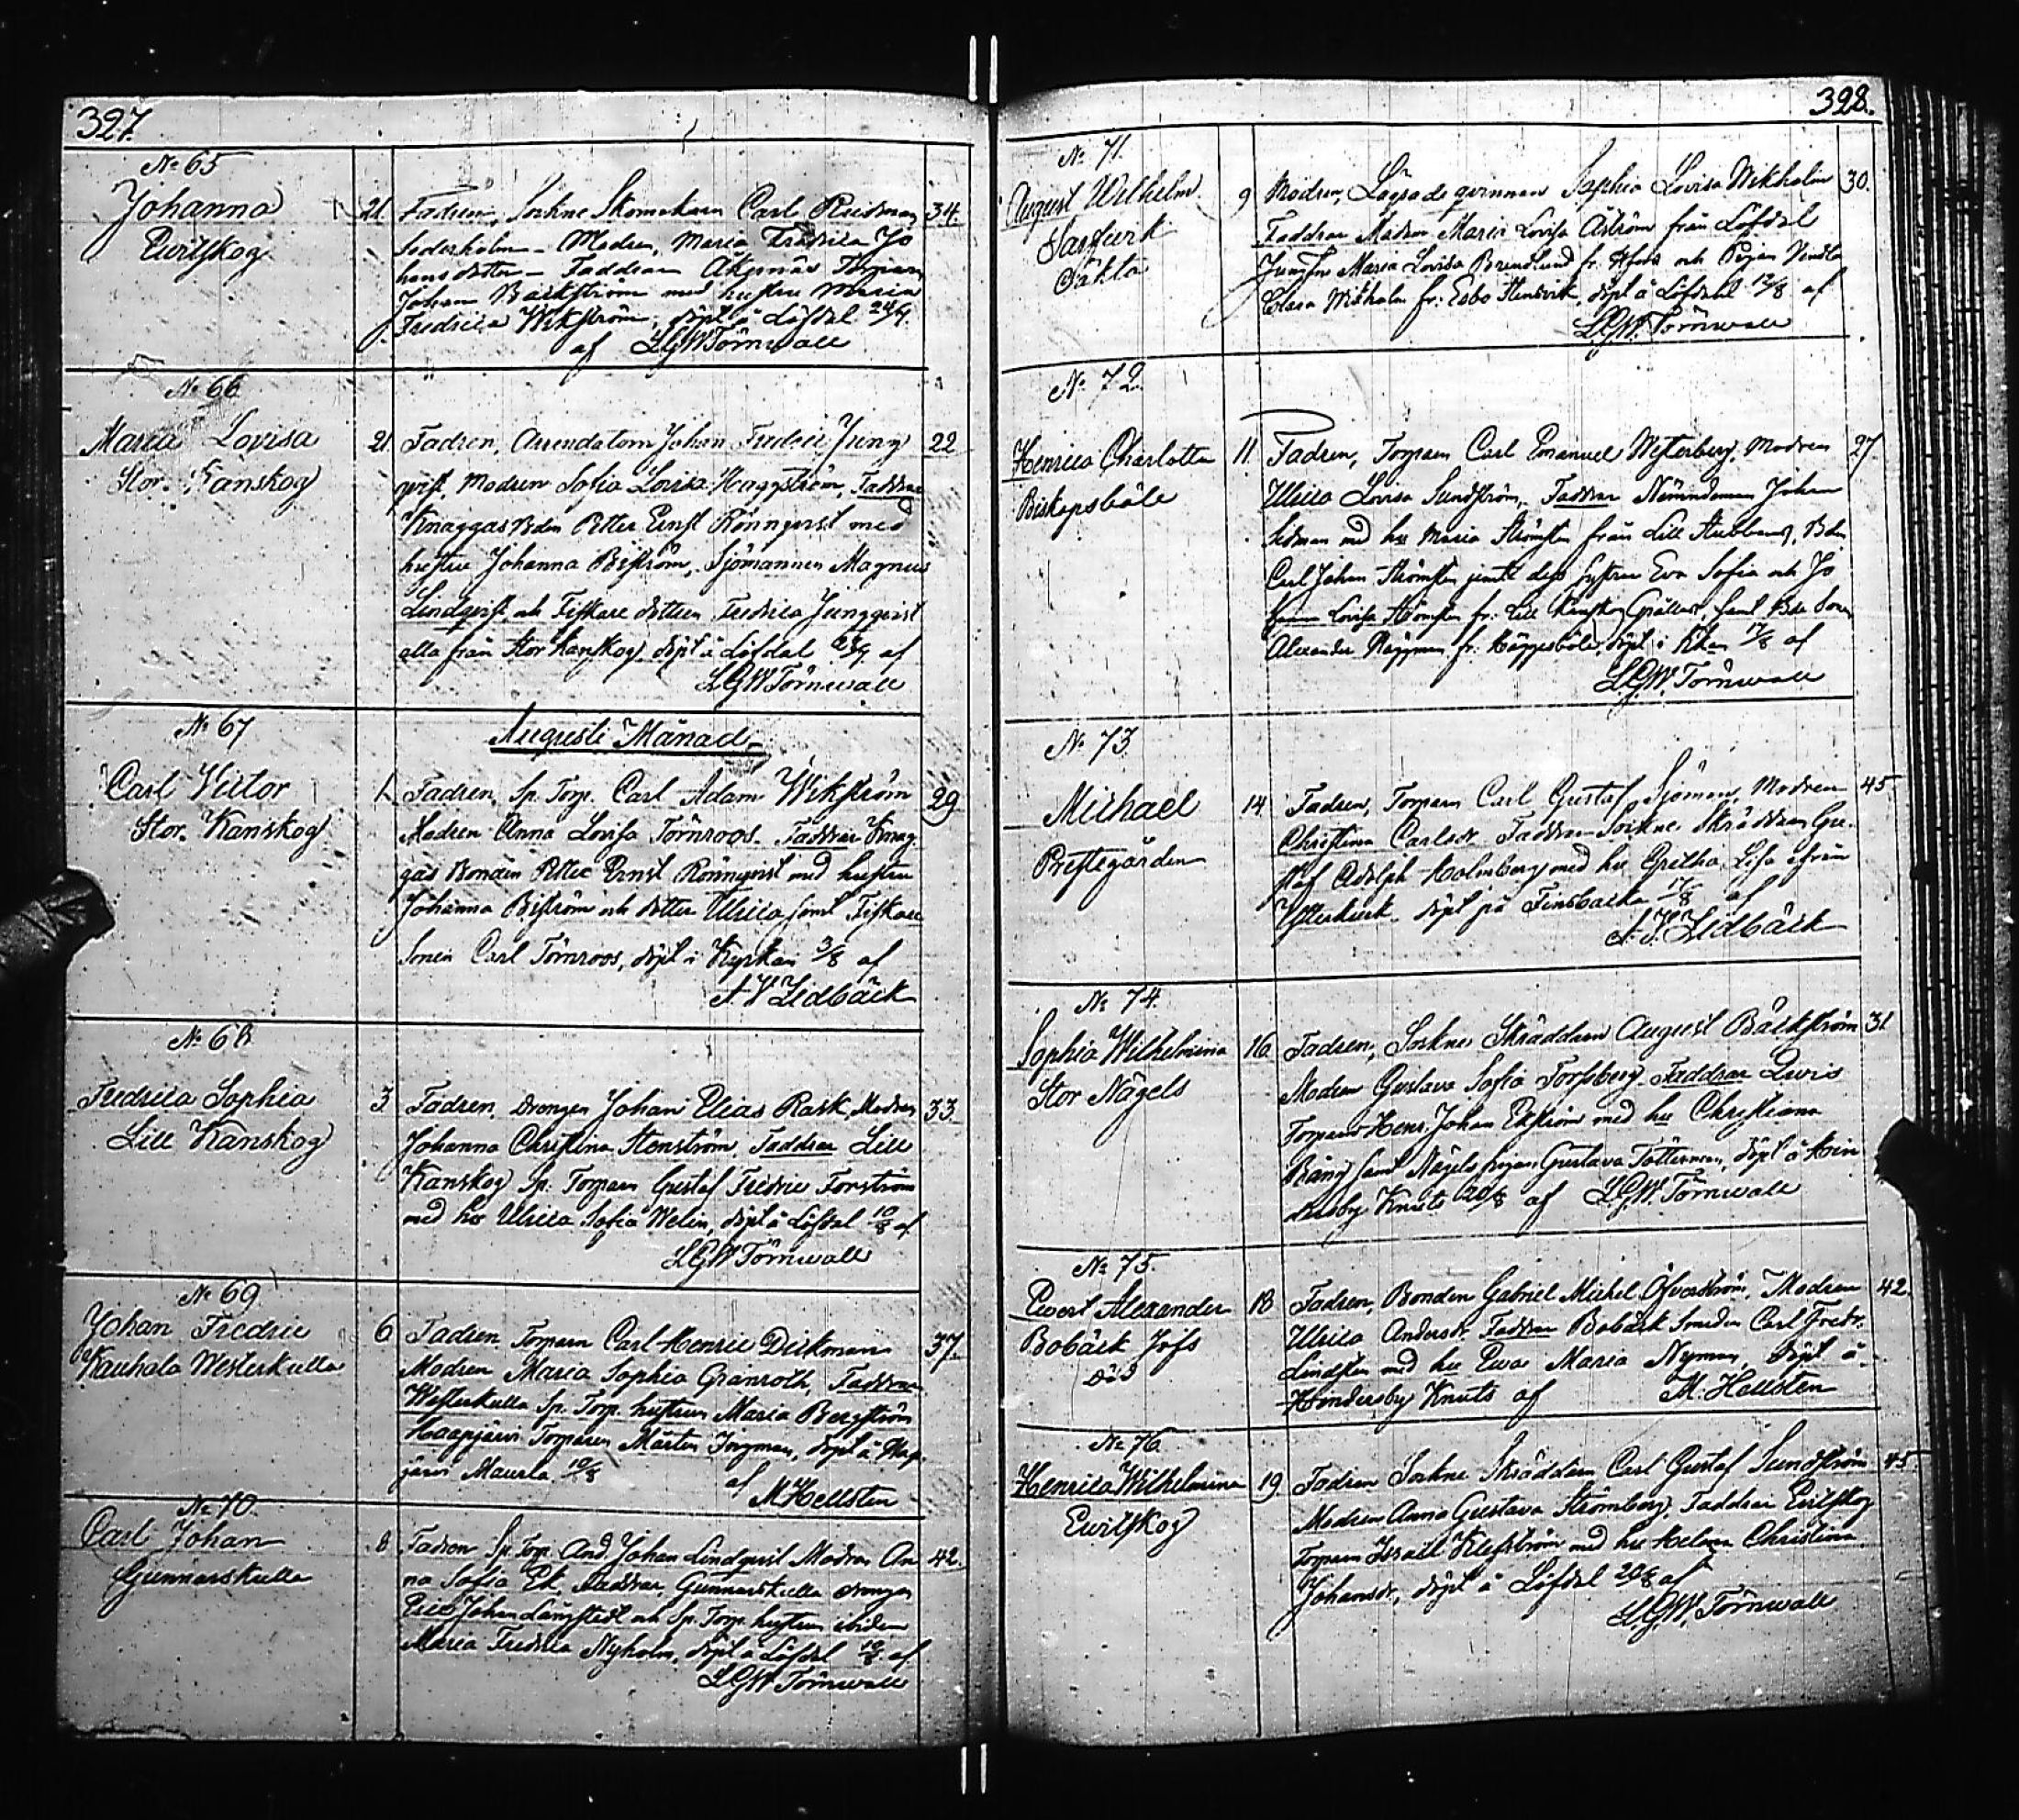 327.
No 65
Johanna
Evitskog
21. Fadren, Sockne Skomakaren Carl 34.
Sederholm – Modren, Maria Fredrica Jo
hansdotter – Faddrar Åkernäs Torparen
Johan Bäckström med hustru Maria
Fredrica Wikström, döpt å Löfdal
af LGWTörnwall
No 66
Maria Lovisa
Stor Kanskog
21. Fadren, Arrendatorn Johan Fredric Jung 22
qvist, Modren Sofia Lovisa Häggström, Faddrar
Knaggas Bden Petter Ernst Rönnqvist med
hustru Johanna Biström, Sjömannen Magnus
Lindqvist och Fiskare dottren Fredrica Jungqvist
alla från Stor Kanskog, döpt å Löfdal af
LGWTörnwall
No 67
Augusti Månad
Carl Victor
Stor Kanskog
1. Fadren, Sp. Torp. Carl Adam Wikström 29
Modren Anna Lovisa Törnroos. Faddrar Knag
gas Bonden Petter Ernst Rönnqvist med hustru
Johanna Biström och dotter Ulrica samt Fiskare
Sonen Carl Törnroos, döpt i Kyrkan 3/8 af
A. V. Lidbäck
No 68
Fredrica Sophia
Lill Kanskog
3. Fadren, Drengen Johan Elias Rask, Modren 33.
Johanna Christina Stenström, Faddrar Lill
Kanskog Sp. Torparn Gustaf Fredric Forström
med hu Ulrica Sofia Welin, döpt å Löfdal 10/8 af
LGWTörnwall
No 69
Johan Fredric
Kauhala Westerkulla
6 Fadren, Torparn Carl Henric Dickman 37.
Modren Maria Sophia Granroth, Faddrar
Westerkulla Sp. Torp. hustrun Maria Bergström
Haapjärvi Torparen Mårten döpt å Haap
järvi Maurla 10/8 af
M Hellsten
No 70.
Carl Johan
Gunnarskulla
8. Fadren Sp. Torp. And. Johan Lindqvist Modren An 42.
na Sofia Ek, Faddrar, Gunnarskulla drengen
Eric Johan Långstedt och Sp. Torp. hustrun ibidem
Maria Fredrica Nyholm, döpt å Löfdal 10/8 af
LGWTörnwall
328.
No 71.
August Wilhelm
Sarfvik
9 Modren, Lägrade qvinnan Sophia Lovisa Wikholm 30.
Faddrar Madam Maria Lovisa Åström från Löfdal
Jungfru Maria Lovisa fr. och Pigan
Clara Wikholm fr. Esbo döpt å Löfdal 12/8 af
LGW. Törnwall
No 72.
Henrica Charlotta
Biskopsböle
11. Fadren, Torparn Carl Emanuel Westerberg, Modren 27
Ulrica Lovisa Sundström, Faddrar Nämndeman Johan
Lidman med hu Maria Strömsten från Lill Stubbans, Bden
Carl Johan Strömsten jemte dess systrar Eva Sofia och Jo
hanna Lovisa Strömsten fr. Lill Kanskog samt Bde Sonen
Alexander Häggman fr. Häggesböle, döpt i Kkan 17/8 af
LGW. Törnwall
No 73.
Michael
Prestegården
14. Fadren, Torparn Carl Gustaf Sjöman, Modren 45
Christina Carlsdr. Faddrar Sockne Skräddarn Gu-
staf Adolph Holmberg med hu Gretha Lisa ifrån
Ytterkurk. döpt på Finsbacka 17/8 af
A. V. Lidbäck
No 74.
Sophia Wilhelmina
Stor Nägels
16. Fadren, Sockne Skräddaren August Bäckström 31
Modren Gustava Sofia Forssberg. Faddrar Qvis
Torparn Henr. Johan Ekström med hu Christiana
Bäng samt Nägels pigan Gustava Tötterman, döpt å Hin
dersby Knuts 20/8 af LGW. Törnwall
No 75.
Evert Alexander
Bobäck Jofs
Död
18 Fadren, Bonden Gabriel Michel Öfverström, Modren 42.
Ulrica Andersdr. Faddrar Bobäck Smeden Carl Fredr.
Lindsten med hu Eva Maria Nyman, döpt å
Hindersby Knuts af M. Hellsten
No 76.
Henrica Wilhelmina
Evitskog
19. Fadren Sockne Skräddaren Carl Gustaf Sundström 45.
Modren Anna Gustava Strömberg, Faddrar Evitskog
Torparn Israel Klefström med hu Helena Christina
Johansdr., döpt å Löfdal 24/8 af
LGW. Törnwall